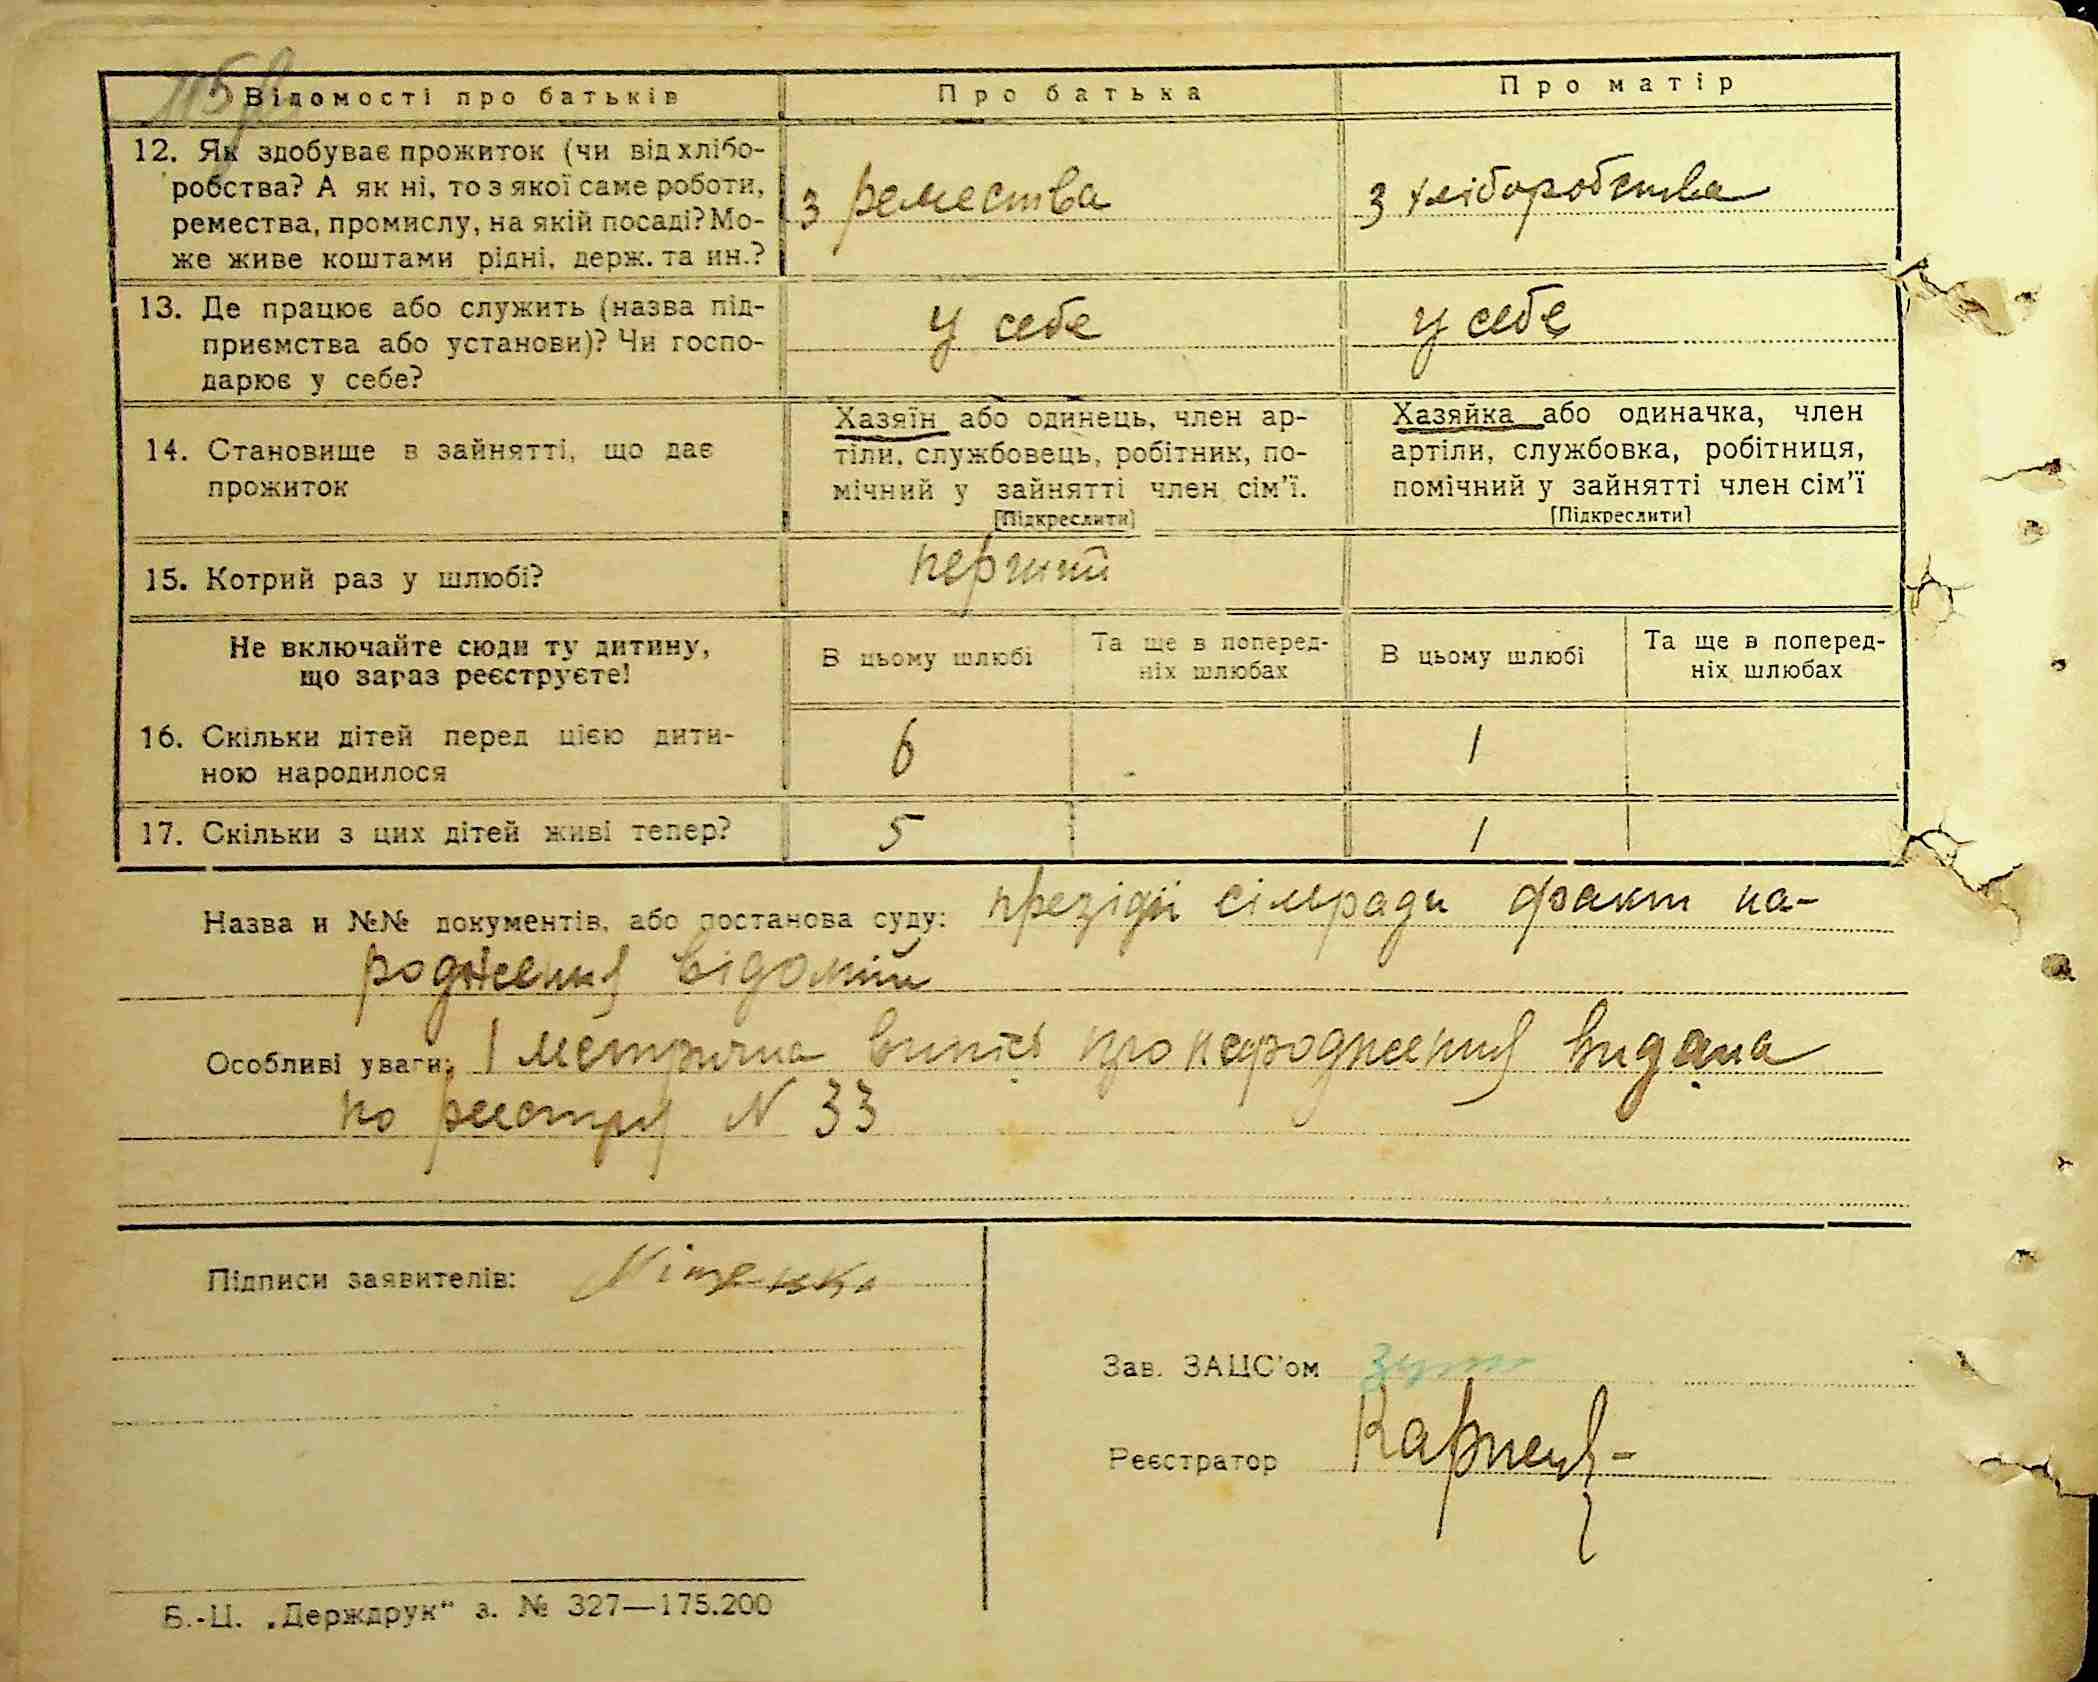 115
Відомості про батьків
Про батька
Про матір
12. Як здобуває прожиток (чи від хлібо-
робства? А як ні, то з якої саме роботи,
ремества, промислу, на якій посаді? Мо-
же живе коштами рідні, держ. та ин.?
з ремества
з хліборобства
13. Де працює або служить (назва під-
приємства або установи)? Чи госпо-
дарює у себе?
у себе
у себе
14. Становище в зайнятті, що дає
прожиток
Хазяїн або одинець, член ар-
тіли, службовець, робітник, по-
мічний у зайнятті член сім’ї.
[Підкреслити]
Хазяйка або одиначка, член
артіли, службовка, робітниця,
помічний у зайнятті член сім’ї
[Підкреслити]
15. Котрий раз у шлюбі?
перший
Не включайте сюди ту дитину,
що зараз реєструєте!
В цьому шлюбі
Та ще в поперед-
ніх шлюбах
В цьому шлюбі
Та ще в поперед-
ніх шлюбах
16. Скільки дітей перед цією дити-
ною народилося
6
1
17. Скільки з цих дітей живі тепер?
5
1
Назва и №№ документів, або постанова суду: презідії сільради факт на-
родження відомий
Особливі уваги: 1 метрична випісь про народження видана
по реєстру N 33
Підписи заявителів:
Зав. ЗАЦС’ом
Реєстратор Карпець
Б.-Ц. „Держдрук“ з. № 327—175.200